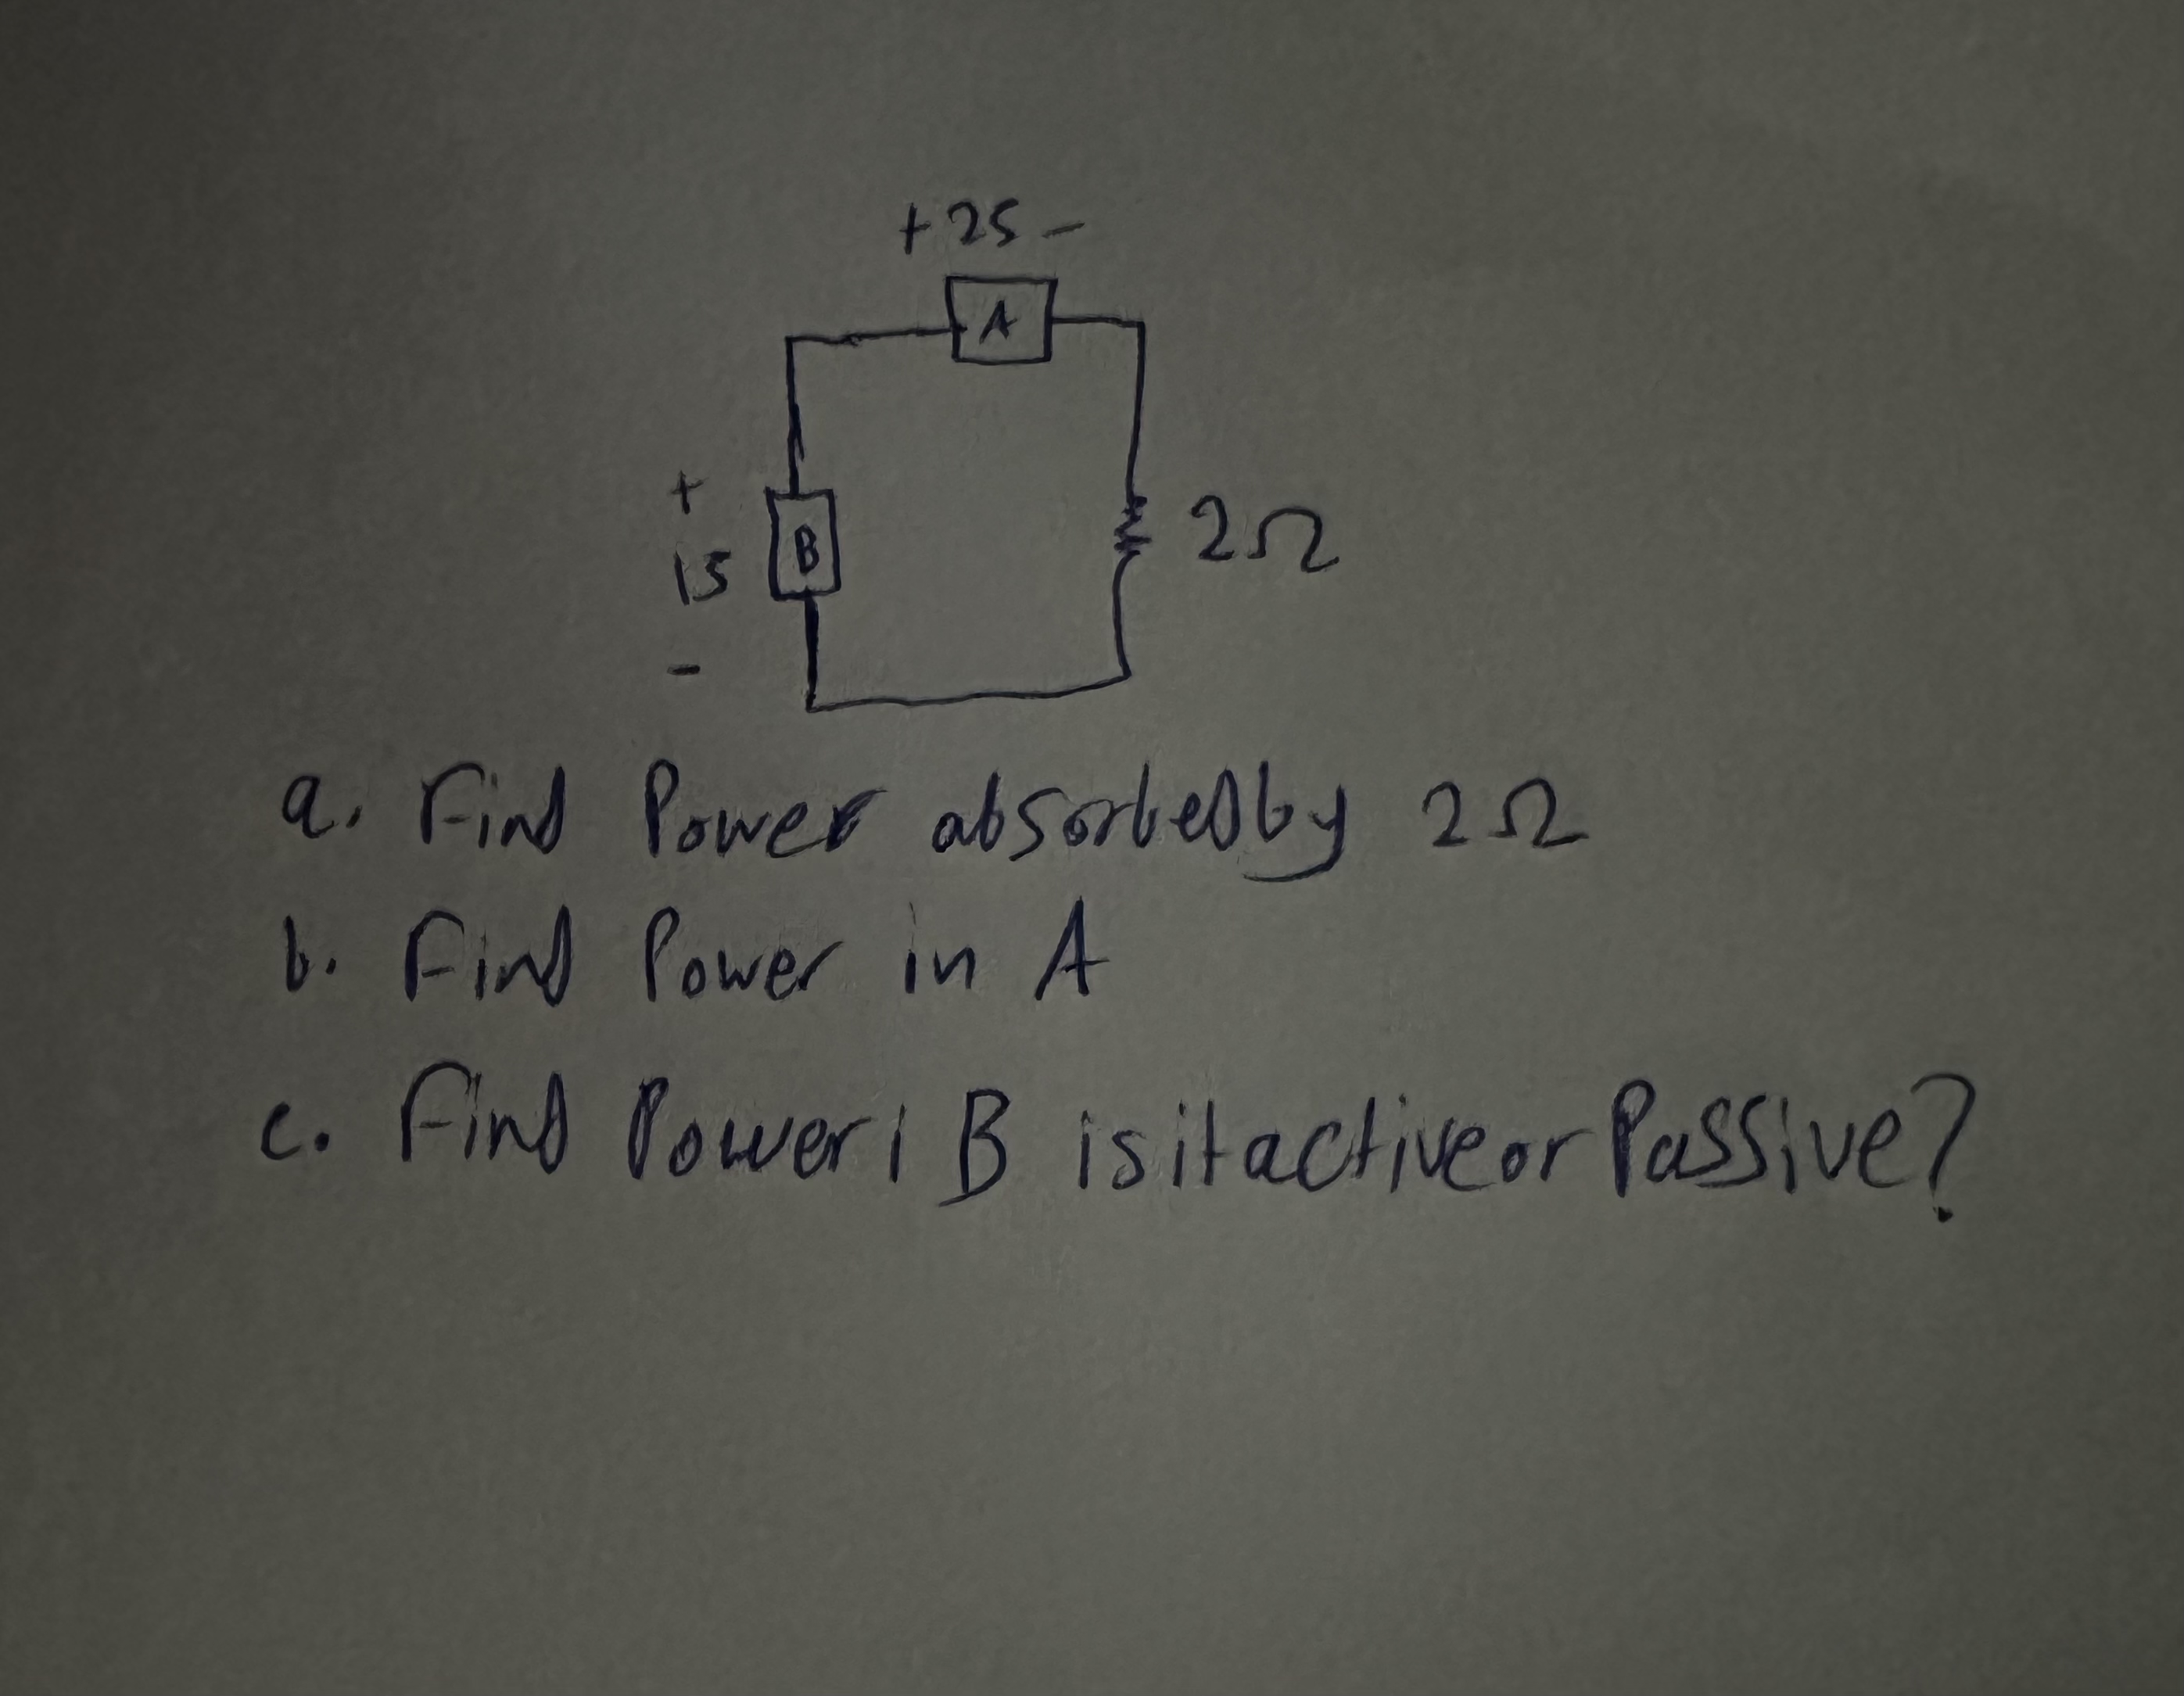 + 25 -
A
+
15
B
2Ω
-
a. Find Power absorbed by 2Ω
b. Find Power in A
c. Find Power i B is it active or Passive?